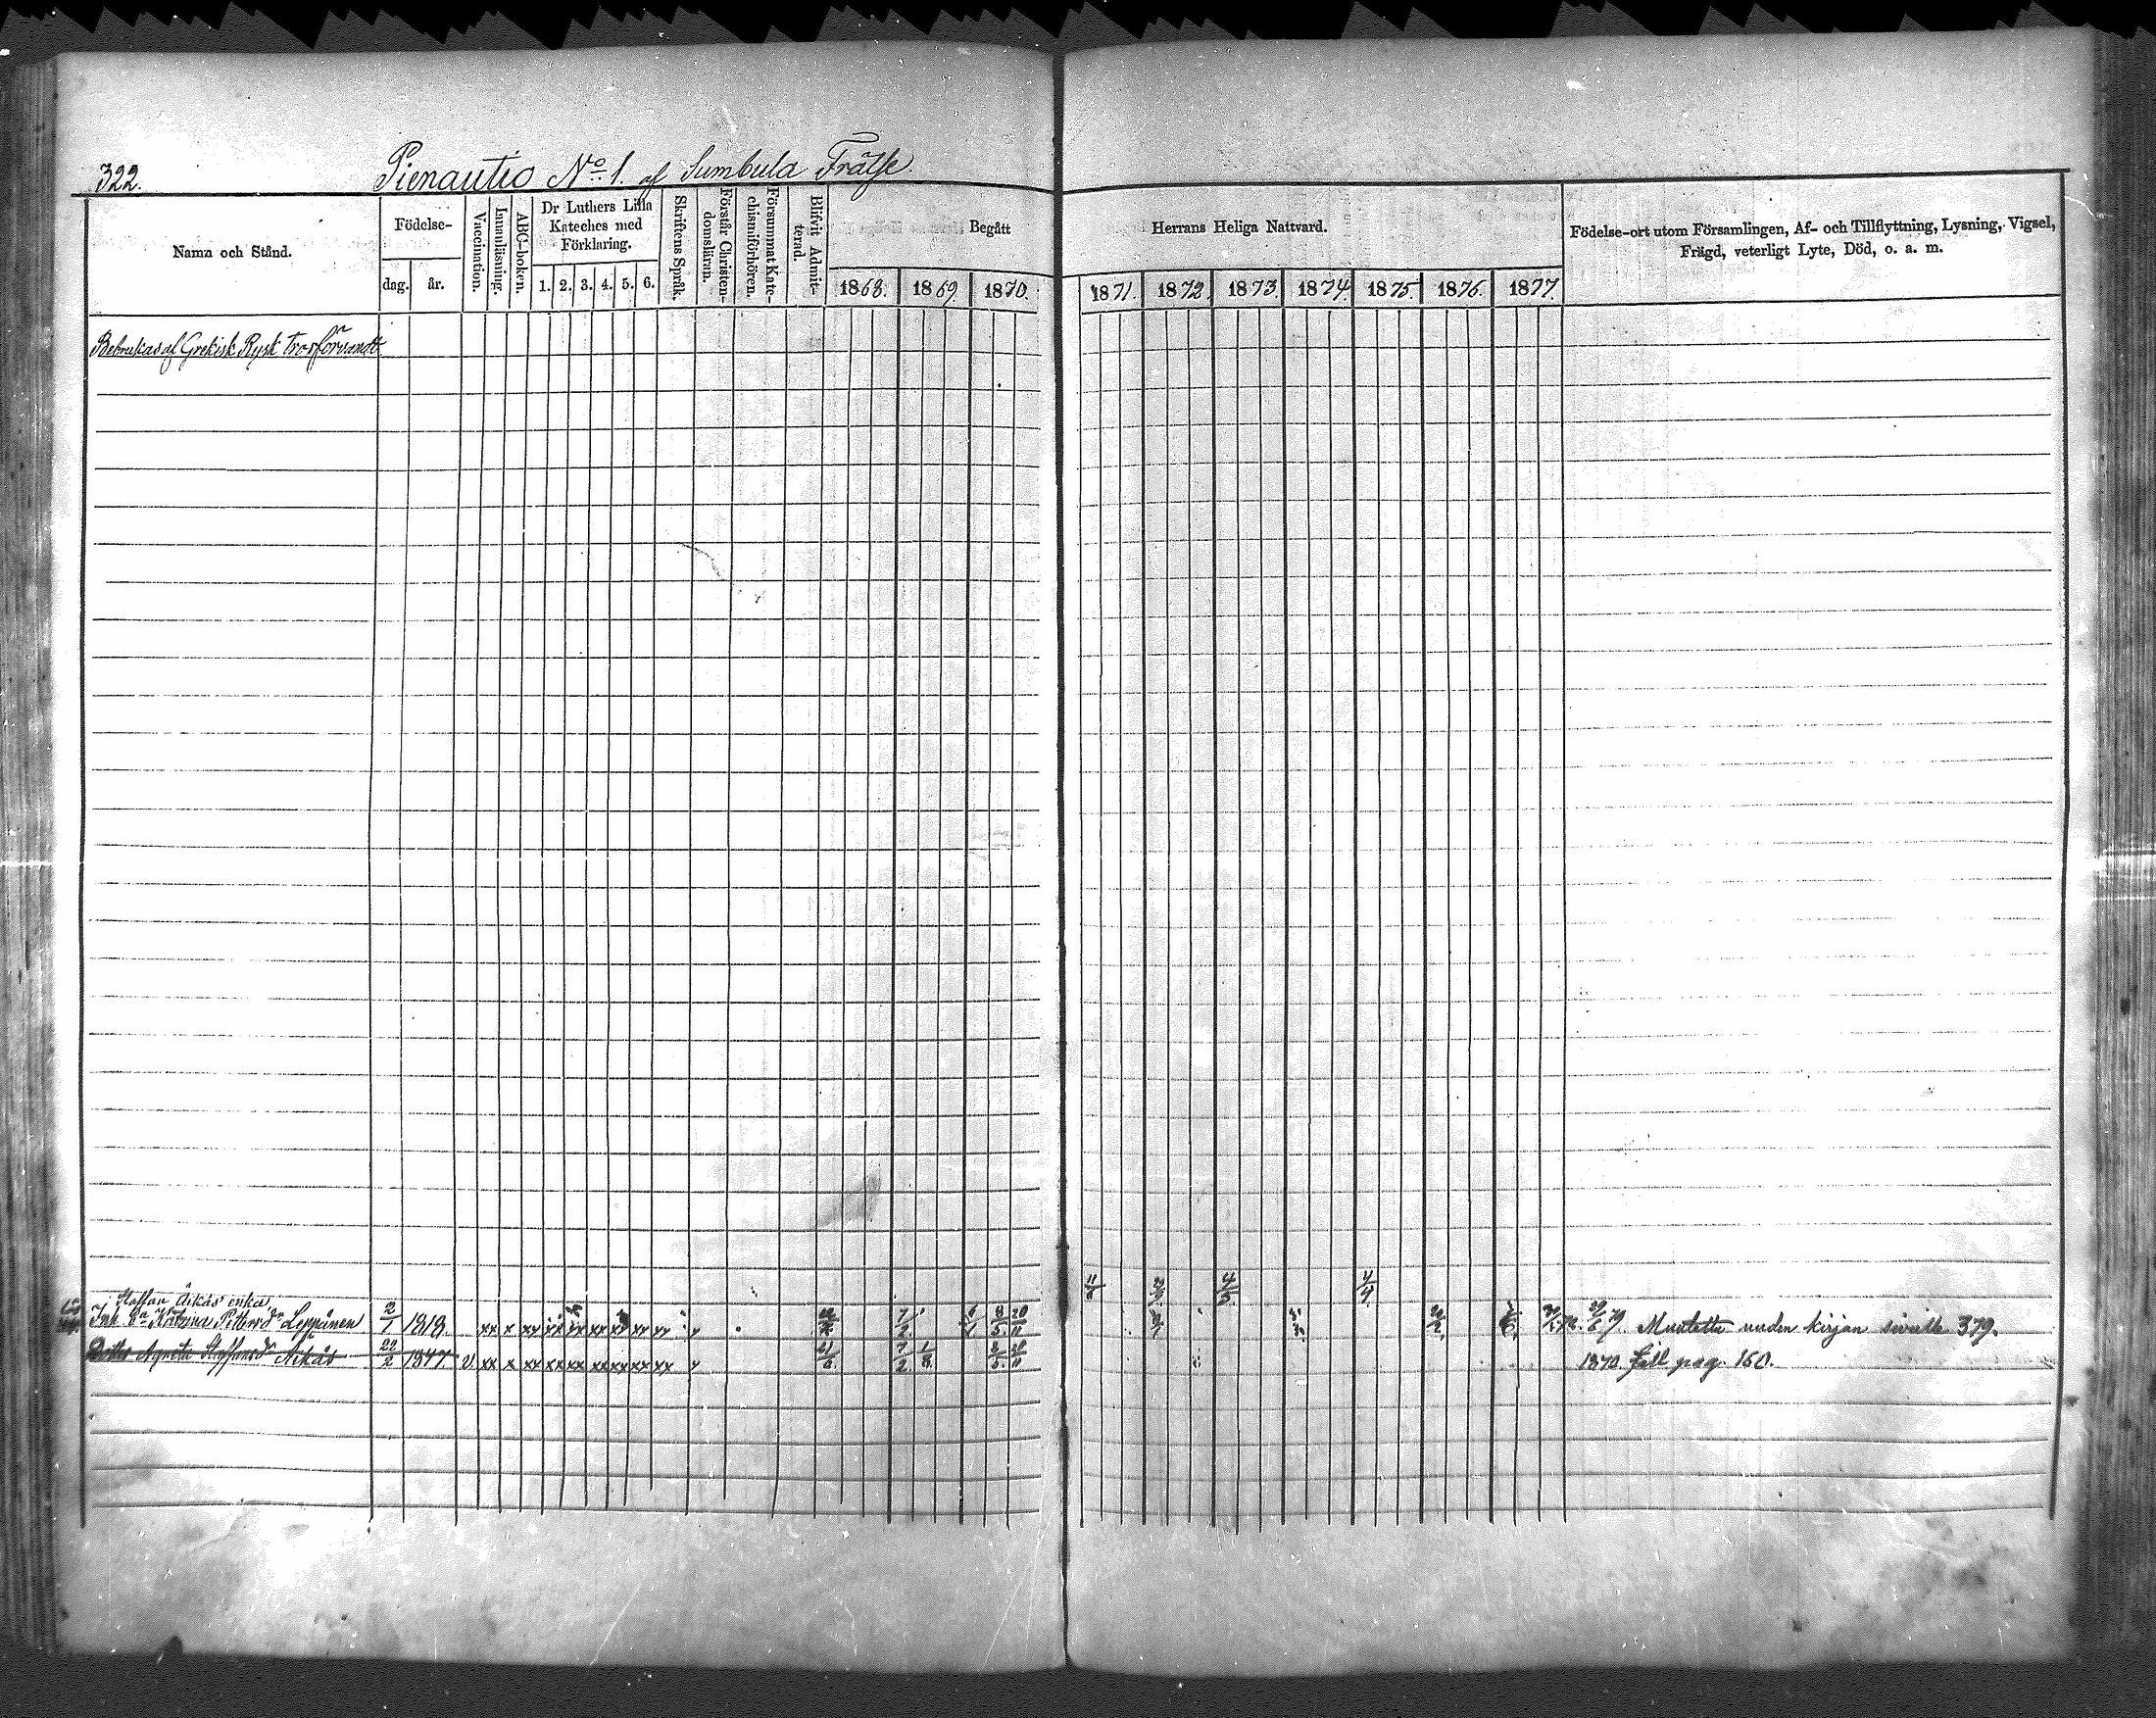 322.
Pienautio No 1. af Sumbula Frälse.
Namn och Stånd.
Födelse-
dag. år.
Vaccination.
Innanläsning.
ABC-boken.
Dr Luthers Lilla Kateches med Förklaring.
1. 2. 3. 4. 5. 6.
Skriftens Språk.
Förstår Christendomsläran.
Försummat Katechismiförhören.
Blifvit Admitterad.
Begått Herrans Heliga Nattvard.
1868. 1869. 1870. 1871. 1872. 1873. 1874. 1875. 1876. 1877.
Födelse-ort utom Församlingen, Af- och Tillflyttning, Lysning, Vigsel,
Frägd, veterligt Lyte, Död, o. a. m.
Bebrukas af Grekisk Rysk Trosförvandt
Staffan Äikäs enka
Inh. Katrina Pettersdr Leppänen 2/1 1818. xx x xx xx xx xx xx xx 29/6 79. Muutettu uuden kirjan sivulle 379.
Dotter Agneta Staffansdr Äikäs 22/2 1847 v. xx x xx xx xx xx xx xx xx 1870 till pag. 160.